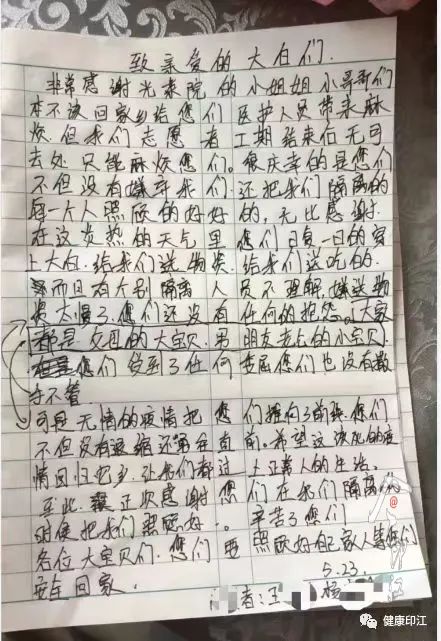 致亲爱的大白们.
非常感谢光荣院的小姐姐小哥哥们
本不该回家乡给您们医护人员带来麻
烦.但我们志愿者工期结束后无可
去处.只能麻烦您们。很庆幸的是您们
不但没有嫌弃我们.还把我们隔离的
每一个人照顾的好好的,无比感谢.
在这炎热的天气里.您们日复一日的穿
上大白.给我们送物资.给我们送吃的.
而且有个别隔离人员不理解.嫌送物
资太慢了.您们还没有任何的抱怨。大家
都是父母的大宝贝.男朋友老公的小宝贝.
您们受到了任何委屈您们也没有撒
手不管.
可是无情的疫情把您们推向了前线.您们
不但没有退缩还勇往直前。希望这该死的疫
情回归吧乡.让我们都过上正常人的生活。
至此.正次感谢您们在我们隔离的
时候把我们照顾好。辛苦了您们
各位大宝贝们.您们要照顾好自己家人等您们
安全回家.
5.23.
者:王 杨
健康印江